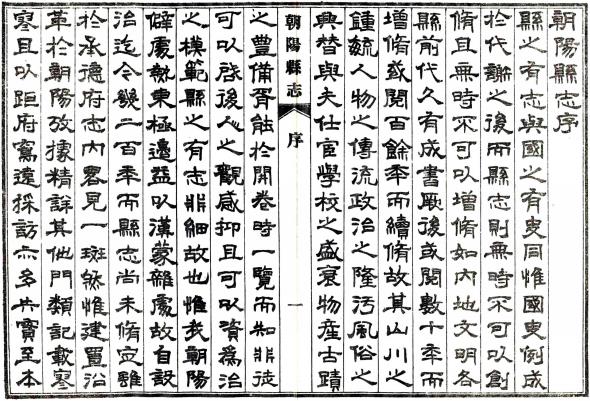 朝陽縣志序
縣之有志與國之有史同惟國史例成
於代謝之後而縣志則無時不可以創
脩且無時不可以增脩如內地文明各
縣前代久有成書厥後或閱數十年而
增脩或閱百餘年而續脩故其山川之
鍾毓人物之傳流政治之隆汚風俗之
興替與夫仕官學校之盛衰物產古蹟
朝陽縣志 序 一
之豐備胥能於開卷時一覽而知非徒
可以啓後人之觀感抑且可以資為治
之模範縣之有志非細故也惟我朝陽
僻處熱東極邊益以漢蒙雜處故自設
治迄今幾二百年而縣志尚未脩定雖
於承德府志內畧見一斑然惟建置沿
革於朝陽攷據精詳其他門類記載寥
寥且以距府窵遠採訪亦多失實至本